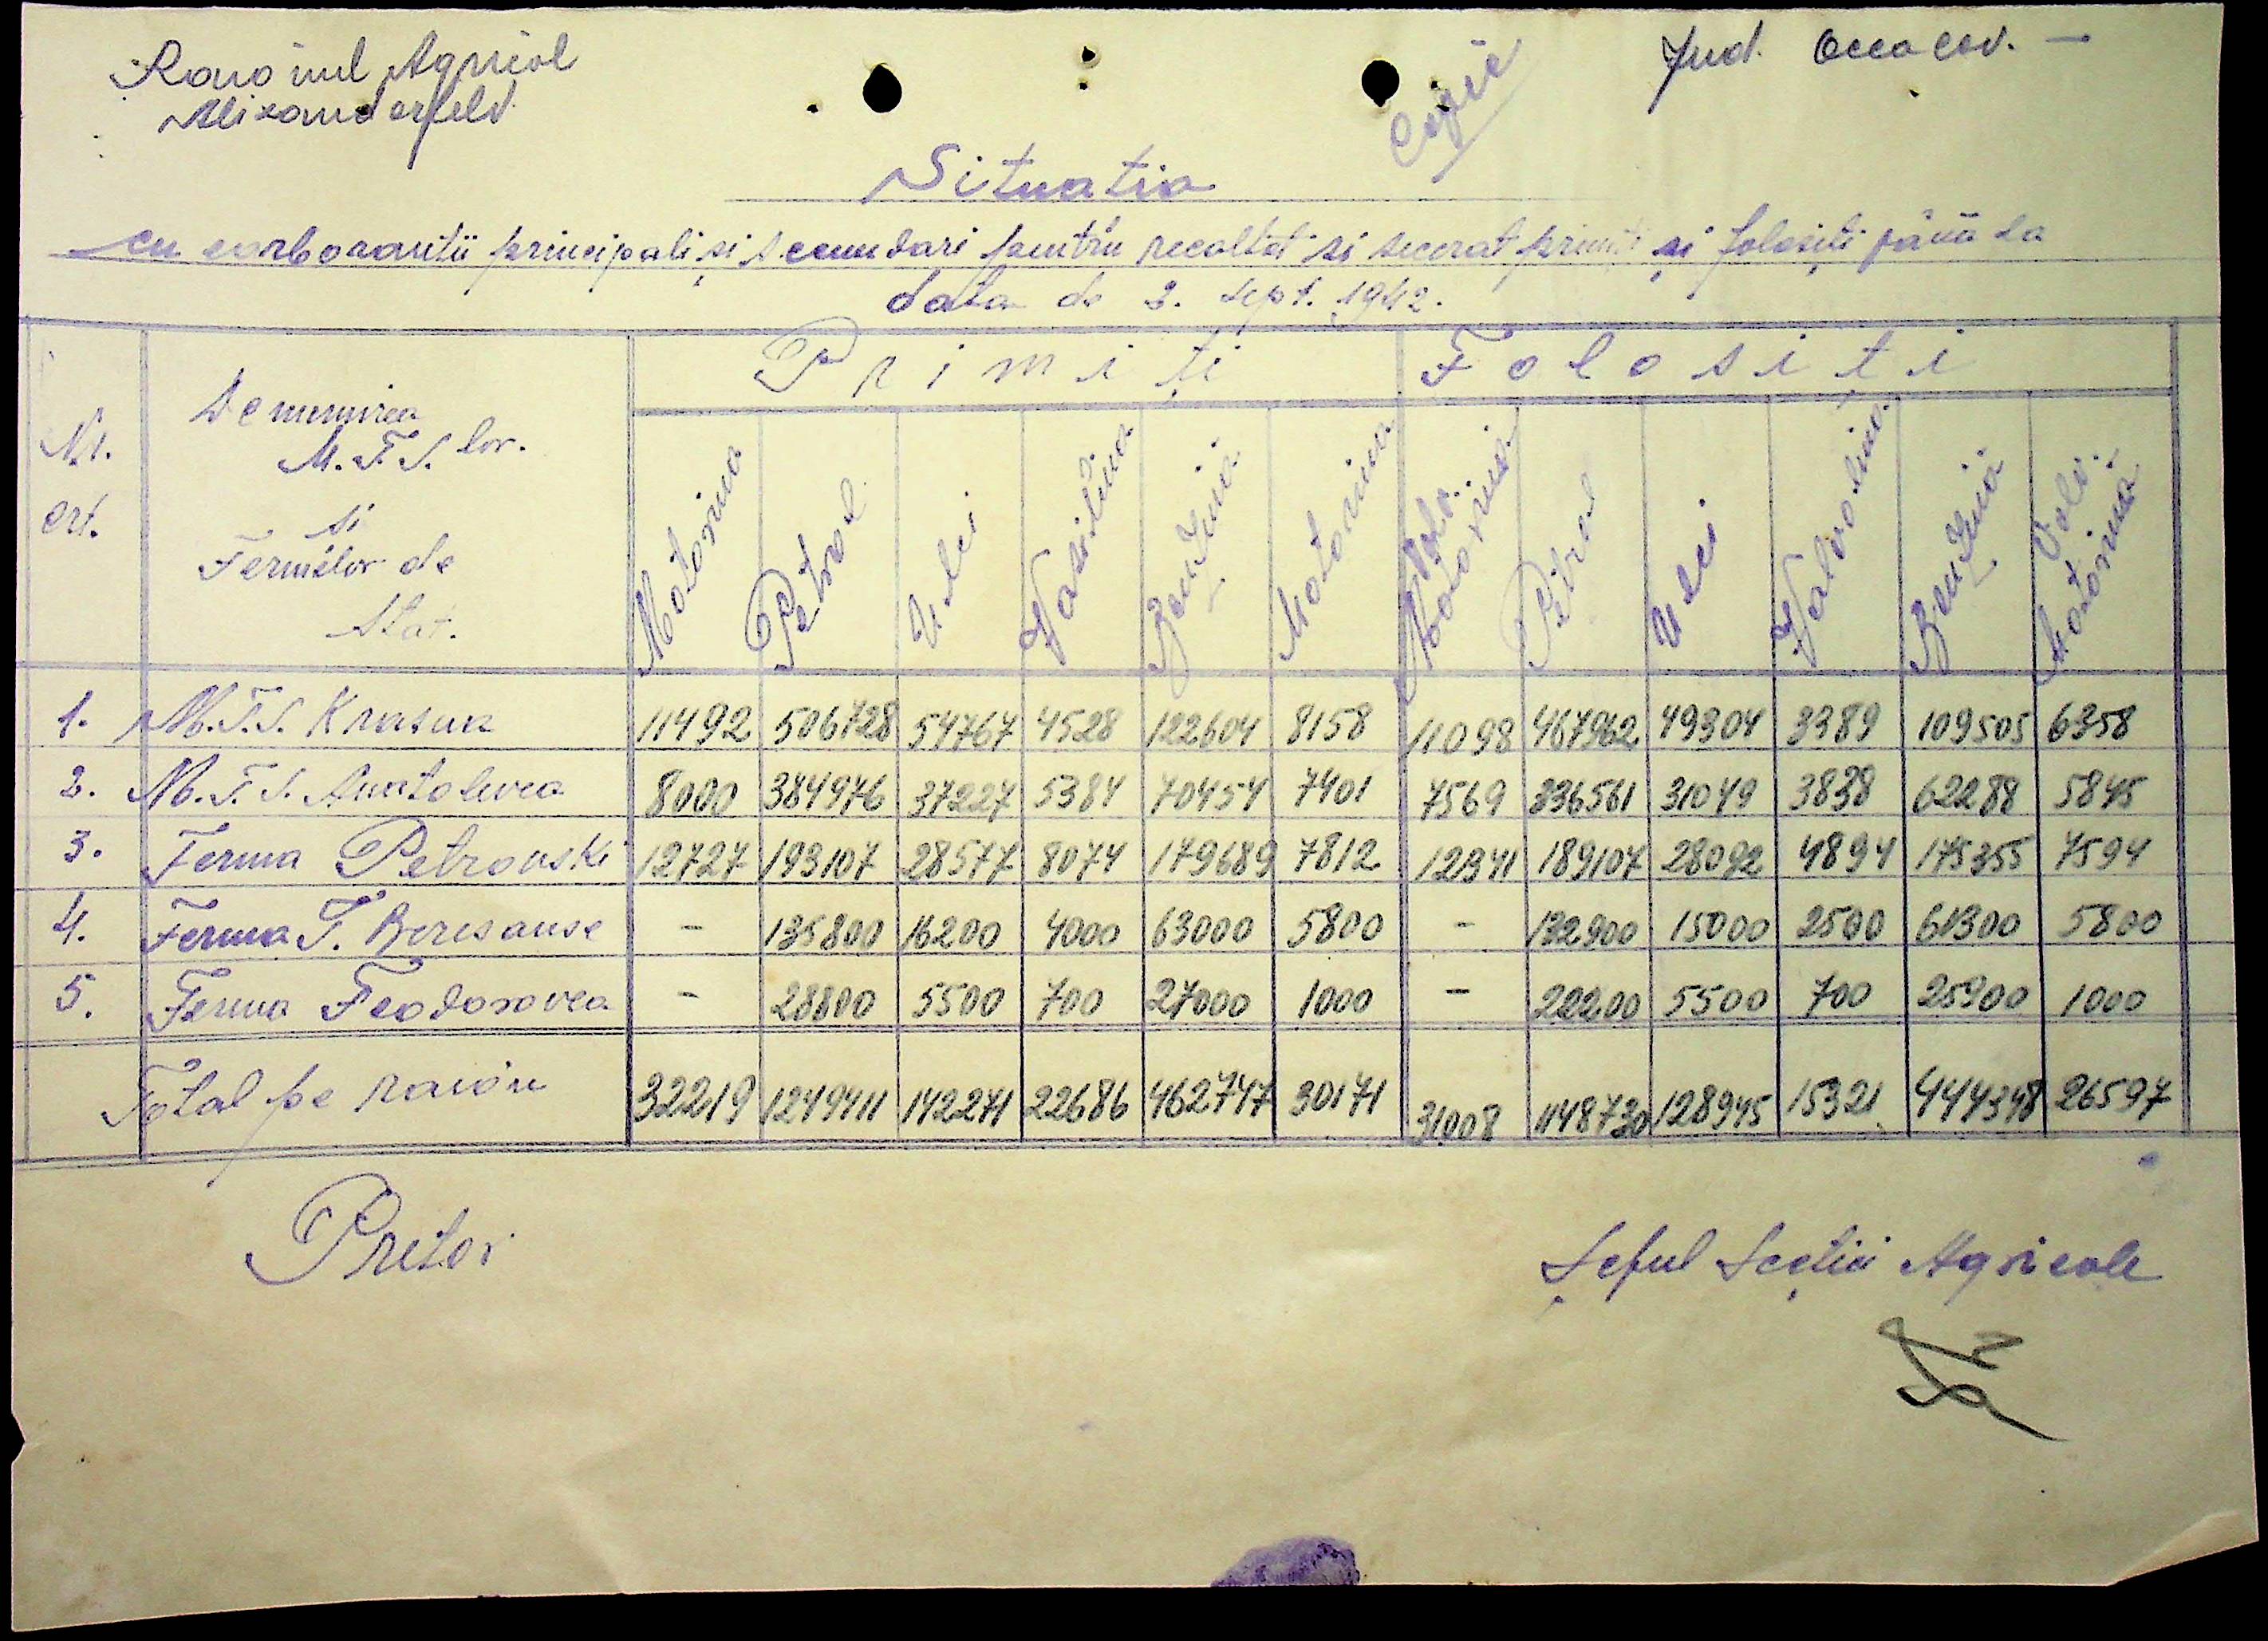 Raionul Agricol
Alixanderfeld
Jud. Oceacov. —
Copie
Situatia
cu carboranții principali, și secundari pentru recoltat si secerat primiti și folosiți până la
data de 3. Sept. 1942.
Nr. crt. | Denumirea M.T.S. lor. si Fermelor de Stat. | Primiți | Folosiți
Motorina | Petrol | Ulei | Vasilina | Benzină | Motorina | Motorina | Petrol | Ulei | Valvolina | Benzină | Motorină
1. M.T.S. Krasna | 11492 | 506728 | 54767 | 4528 | 122604 | 8158 | 11098 | 467962 | 49304 | 3389 | 109505 | 6358
2. M.T.S. Anatolevca | 8000 | 384976 | 37227 | 5384 | 70454 | 7401 | 7569 | 336561 | 31049 | 3838 | 62288 | 5845
3. Ferma Petrovski | 12727 | 193107 | 28577 | 8074 | 179689 | 7812 | 12341 | 189107 | 28092 | 4894 | 175355 | 7594
4. Ferma T. Beresanse | - | 135800 | 16200 | 4000 | 63000 | 5800 | - | 132900 | 15000 | 2500 | 61300 | 5800
5. Ferma Feodosovca | - | 28800 | 5500 | 700 | 27000 | 1000 | - | 22200 | 5500 | 700 | 25900 | 1000
Total pe raion | 32219 | 1249411 | 142271 | 22686 | 462747 | 30171 | 31008 | 1148730 | 128945 | 15321 | 444348 | 26597
Pretor
Șeful Secției Agricole